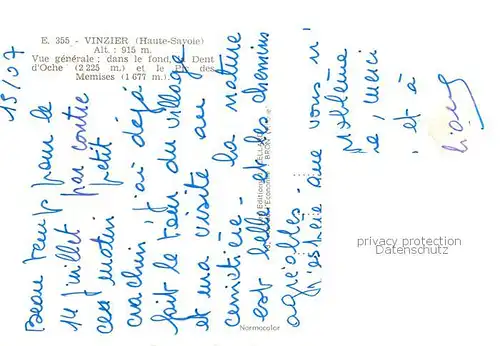 E. 355 - VINZIER (Haute-Savoie)
Alt. : 915 m.
Vue générale ; dans le fond, la Dent
d'Oche (2 225 m.) et le Pic des
Memises (1 677 m.).
15/07
Beau temps pour le
14 Juillet par contre
ce matin petit
crachin j'ai déjà
fait le tour du village
et ma visite au
cimetière - la nature
est belle et les chemins
agréables -
J'espère que vous n'
problème
, merci
, et à
Normocolor
privacy protection
Datenschutz